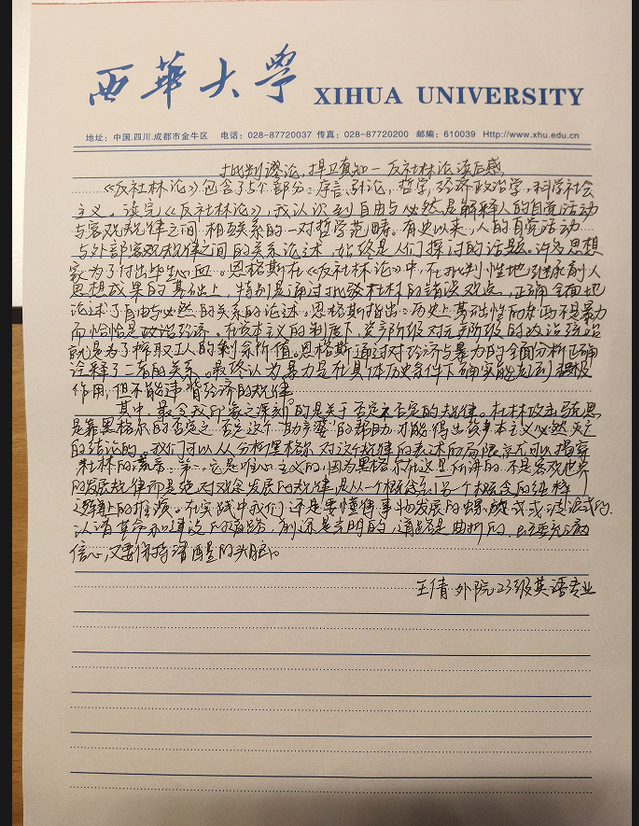 西華大學 XIHUA UNIVERSITY
地址：中国.四川.成都市金牛区 电话：028-87720037 传真：028-87720200 邮编：610039 Http://www.xhu.edu.cn
批判谬论，捍卫真知—反杜林论读后感
《反杜林论》包含了5个部分：序言、引论，哲学，经济政治学，科学社会
主义。读完《反杜林论》，我认识到自由与必然是解释人的自觉活动
与客观规律之间相互关系的一对哲学范畴。有史以来，人的自觉活动
与外部客观规律之间的关系论述，始终是人们探讨的话题。许多思想
家为了付出毕生心血。恩格斯在《反杜林论》中，在批判性地继承前人
思想成果的基础上，特别是通过批驳杜林的错误观点，正确全面地
论述了自由与必然的关系的论述。恩格斯指出：历史上基础性的东西不是暴力
而恰恰是政治经济。在资本主义的制度下，资产阶级对无产阶级的政治统治
就是为了榨取工人的剩余价值。恩格斯通过对经济与暴力的全面分析正确
诠释了二者的关系。最终认为暴力是在具体历史条件下确实能起到积极
作用，但不能违背经济的规律。
其中最令我印象之深刻的是关于否定之否定的规律。杜林攻击马克思
是靠黑格尔的否定之否定这个“助产婆”的帮助，才能得出资本主义必然灭亡
的结论的。我们可以从分析黑格尔对这个规律的表述的局限就可以揭穿
杜林的。第一，它是唯心主义的，因为黑格尔在这里所讲的，不是客观世界
的发展规律而是绝对观念发展的规律，是从一个概念到另一个概念的纯粹
逻辑上的推演。在实践中我们还是要懂得事物发展的螺旋式或波浪式的。
认清革命和建设的道路，前途是光明的，道路是曲折的，既要充满
信心，又要保持清醒的头脑。
王倩 外院23级英语专业